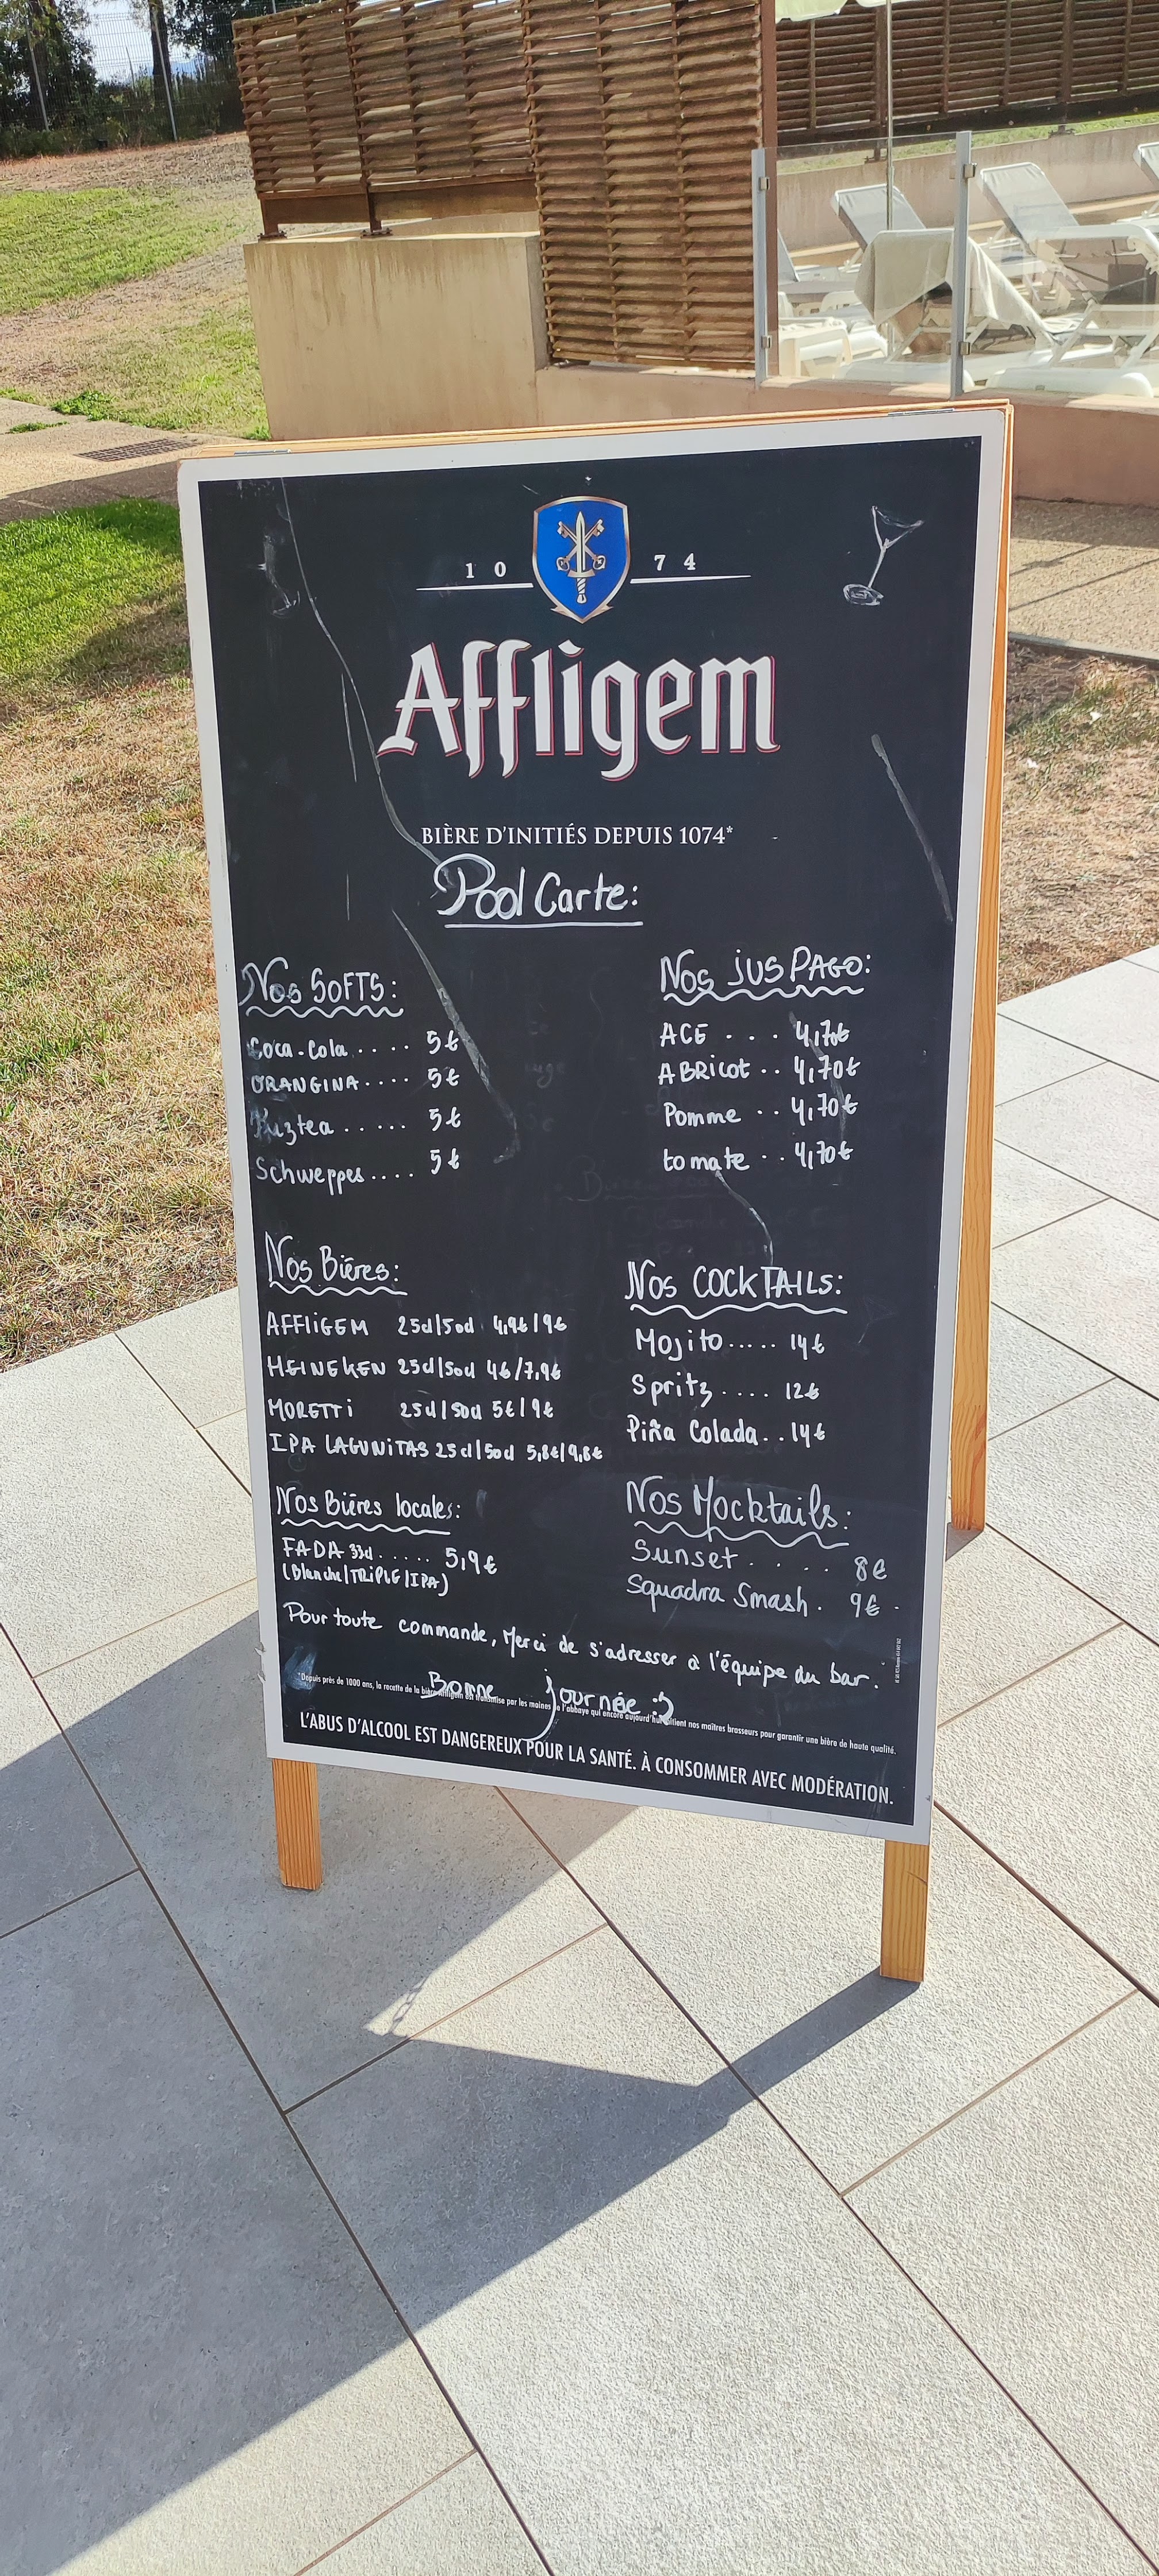 10 74
Affligem
BIÈRE D'INITIÉS DEPUIS 1074*
Pool Carte:
Nos SOFTS:
Coca-Cola .... 5€
ORANGINA .... 5€
Fuztea ..... 5€
Schweppes .... 5€
Nos jus PAGO:
ACE . . . 4,70€
ABRicot .. 4,70€
Pomme .. 4,70€
tomate .. 4,70€
Nos Bières:
AFFLiGEM 25cl/50cl 4,9€/9€
HEINEKEN 25cl/50cl 4€/7,9€
MORETTi 25cl/50cl 5€/9€
IPA LAGUNiTAS 25cl/50cl 5,8€/9,8€
Nos COCKTAILS:
Mojito ..... 14€
Spritz .... 12€
Piña Colada .. 14€
Nos Bières locales:
FADA 33cl ..... 5,9€
(Blanche/TRiPLE/IPA)
Nos Mocktails:
Sunset . . . . 8€
Squadra Smash . 9€ .
Pour toute commande, Merci de s'adresser à l'équipe du bar.
Bonne journée :)
*Depuis près de 1000 ans, la recette de la bière Affligem est transmise par les moines de l'abbaye qui encore aujourd'hui nos maîtres brasseurs pour garantir une bière de haute qualité.
L'ABUS D'ALCOOL EST DANGEREUX POUR LA SANTÉ. À CONSOMMER AVEC MODÉRATION.